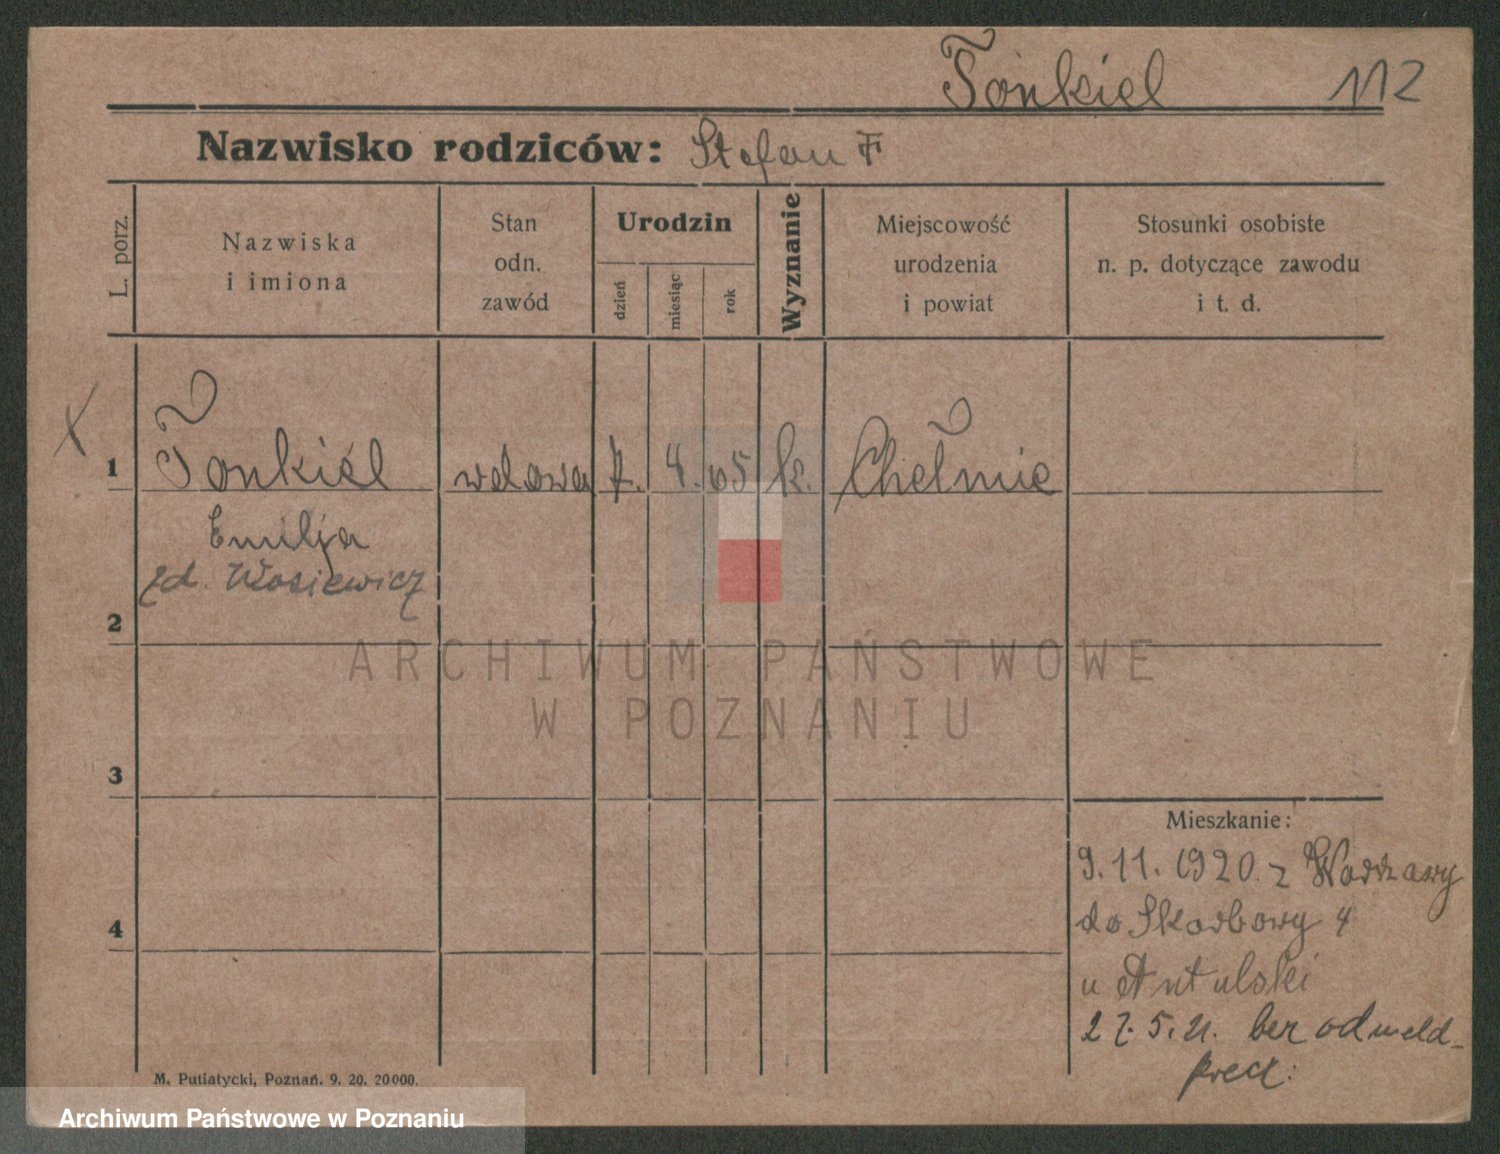 Tonkiel 112
Nazwisko rodziców: Stefan F
L. porz.
Nazwiska
i imiona
Stan
odn.
zawód
Urodzin
dzień
miesiąc
rok
Wyznanie
Miejscowość
urodzenia
i powiat
Stosunki osobiste
n. p. dotyczące zawodu
i t. d.
1 Tonkiel wdowa 7. 4. 65 k. Chełmie
Emilja
zd. Wosiewicz
2
ARCHIWUM PAŃSTWOWE
W POZNANIU
3
Mieszkanie:
9.11.1920 z Warszawy
4
do Skarbowy 4
u Antulski
27.5.21. bez odmeld-
precz.
M. Putiatycki, Poznań. 9. 20. 20000.
Archiwum Państwowe w Poznaniu